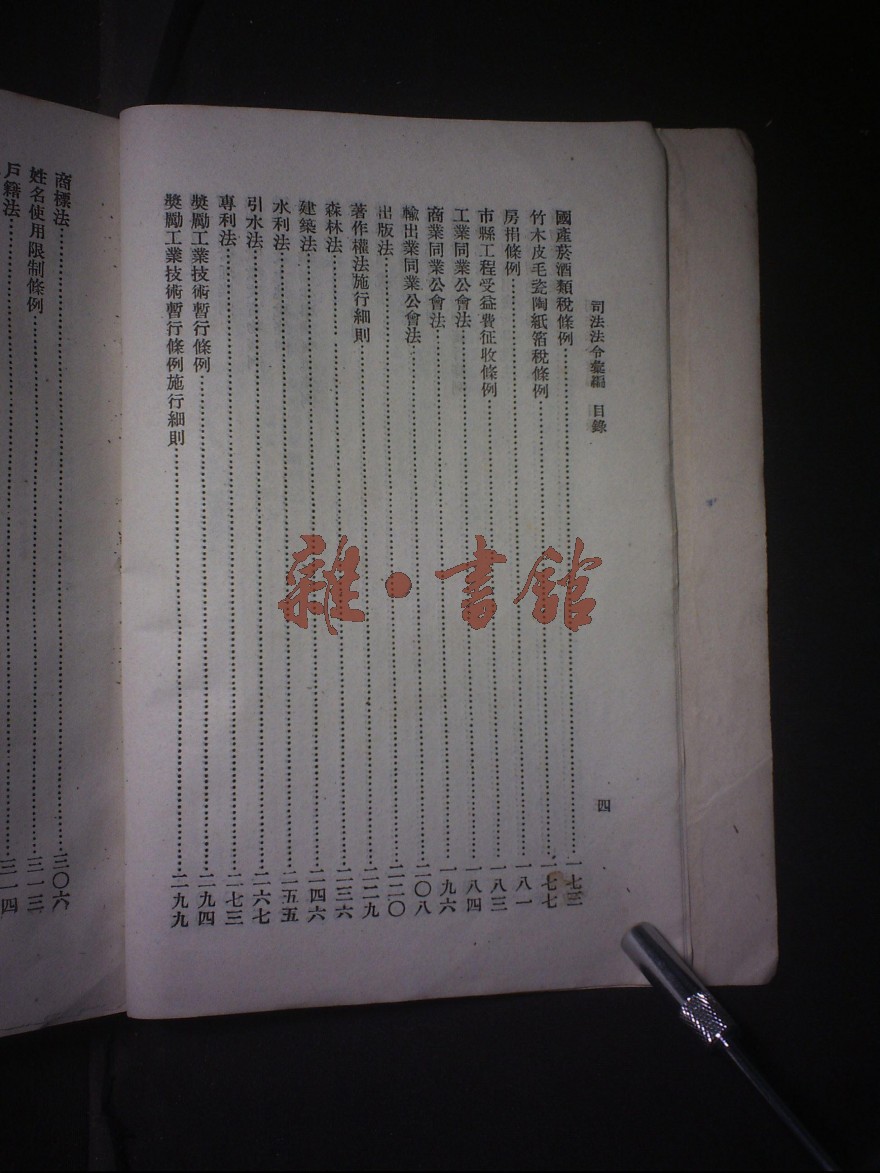 司法法令彙編 目錄
四
國產菸酒類稅條例……一七三
竹木皮毛瓷陶紙箔稅條例……一七七
房捐條例……一八一
市縣工程受益費征收條例……一八三
工業同業公會法……一八四
商業同業公會法……一九六
輸出業同業公會法……二〇八
出版法……二二〇
著作權法施行細則……二二九
森林法……二三六
建築法……二四六
水利法……二五五
引水法……二六七
專利法……二七三
獎勵工業技術暫行條例……二九四
獎勵工業技術暫行條例施行細則……二九九
商標法……三〇六
姓名使用限制條例……三一三
戶籍法……三一四
雜·書館